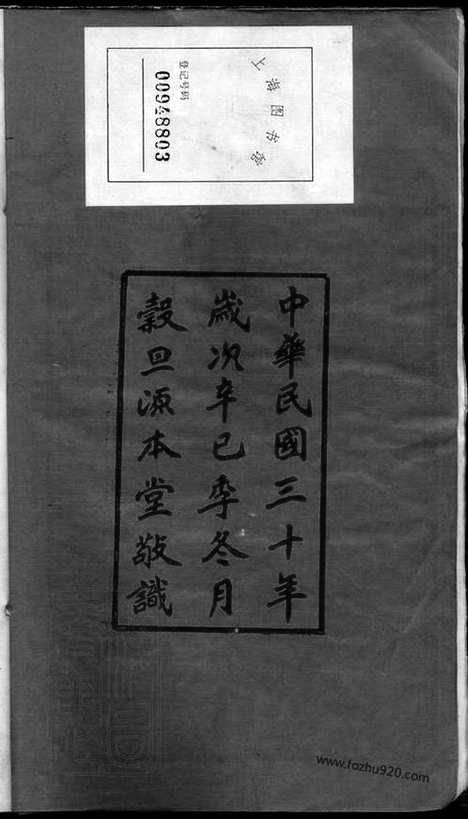 上海图书馆
登记号码
00948803
中華民國三十年
歲次辛巳季冬月
穀旦源本堂敬識
www.fozhu920.com